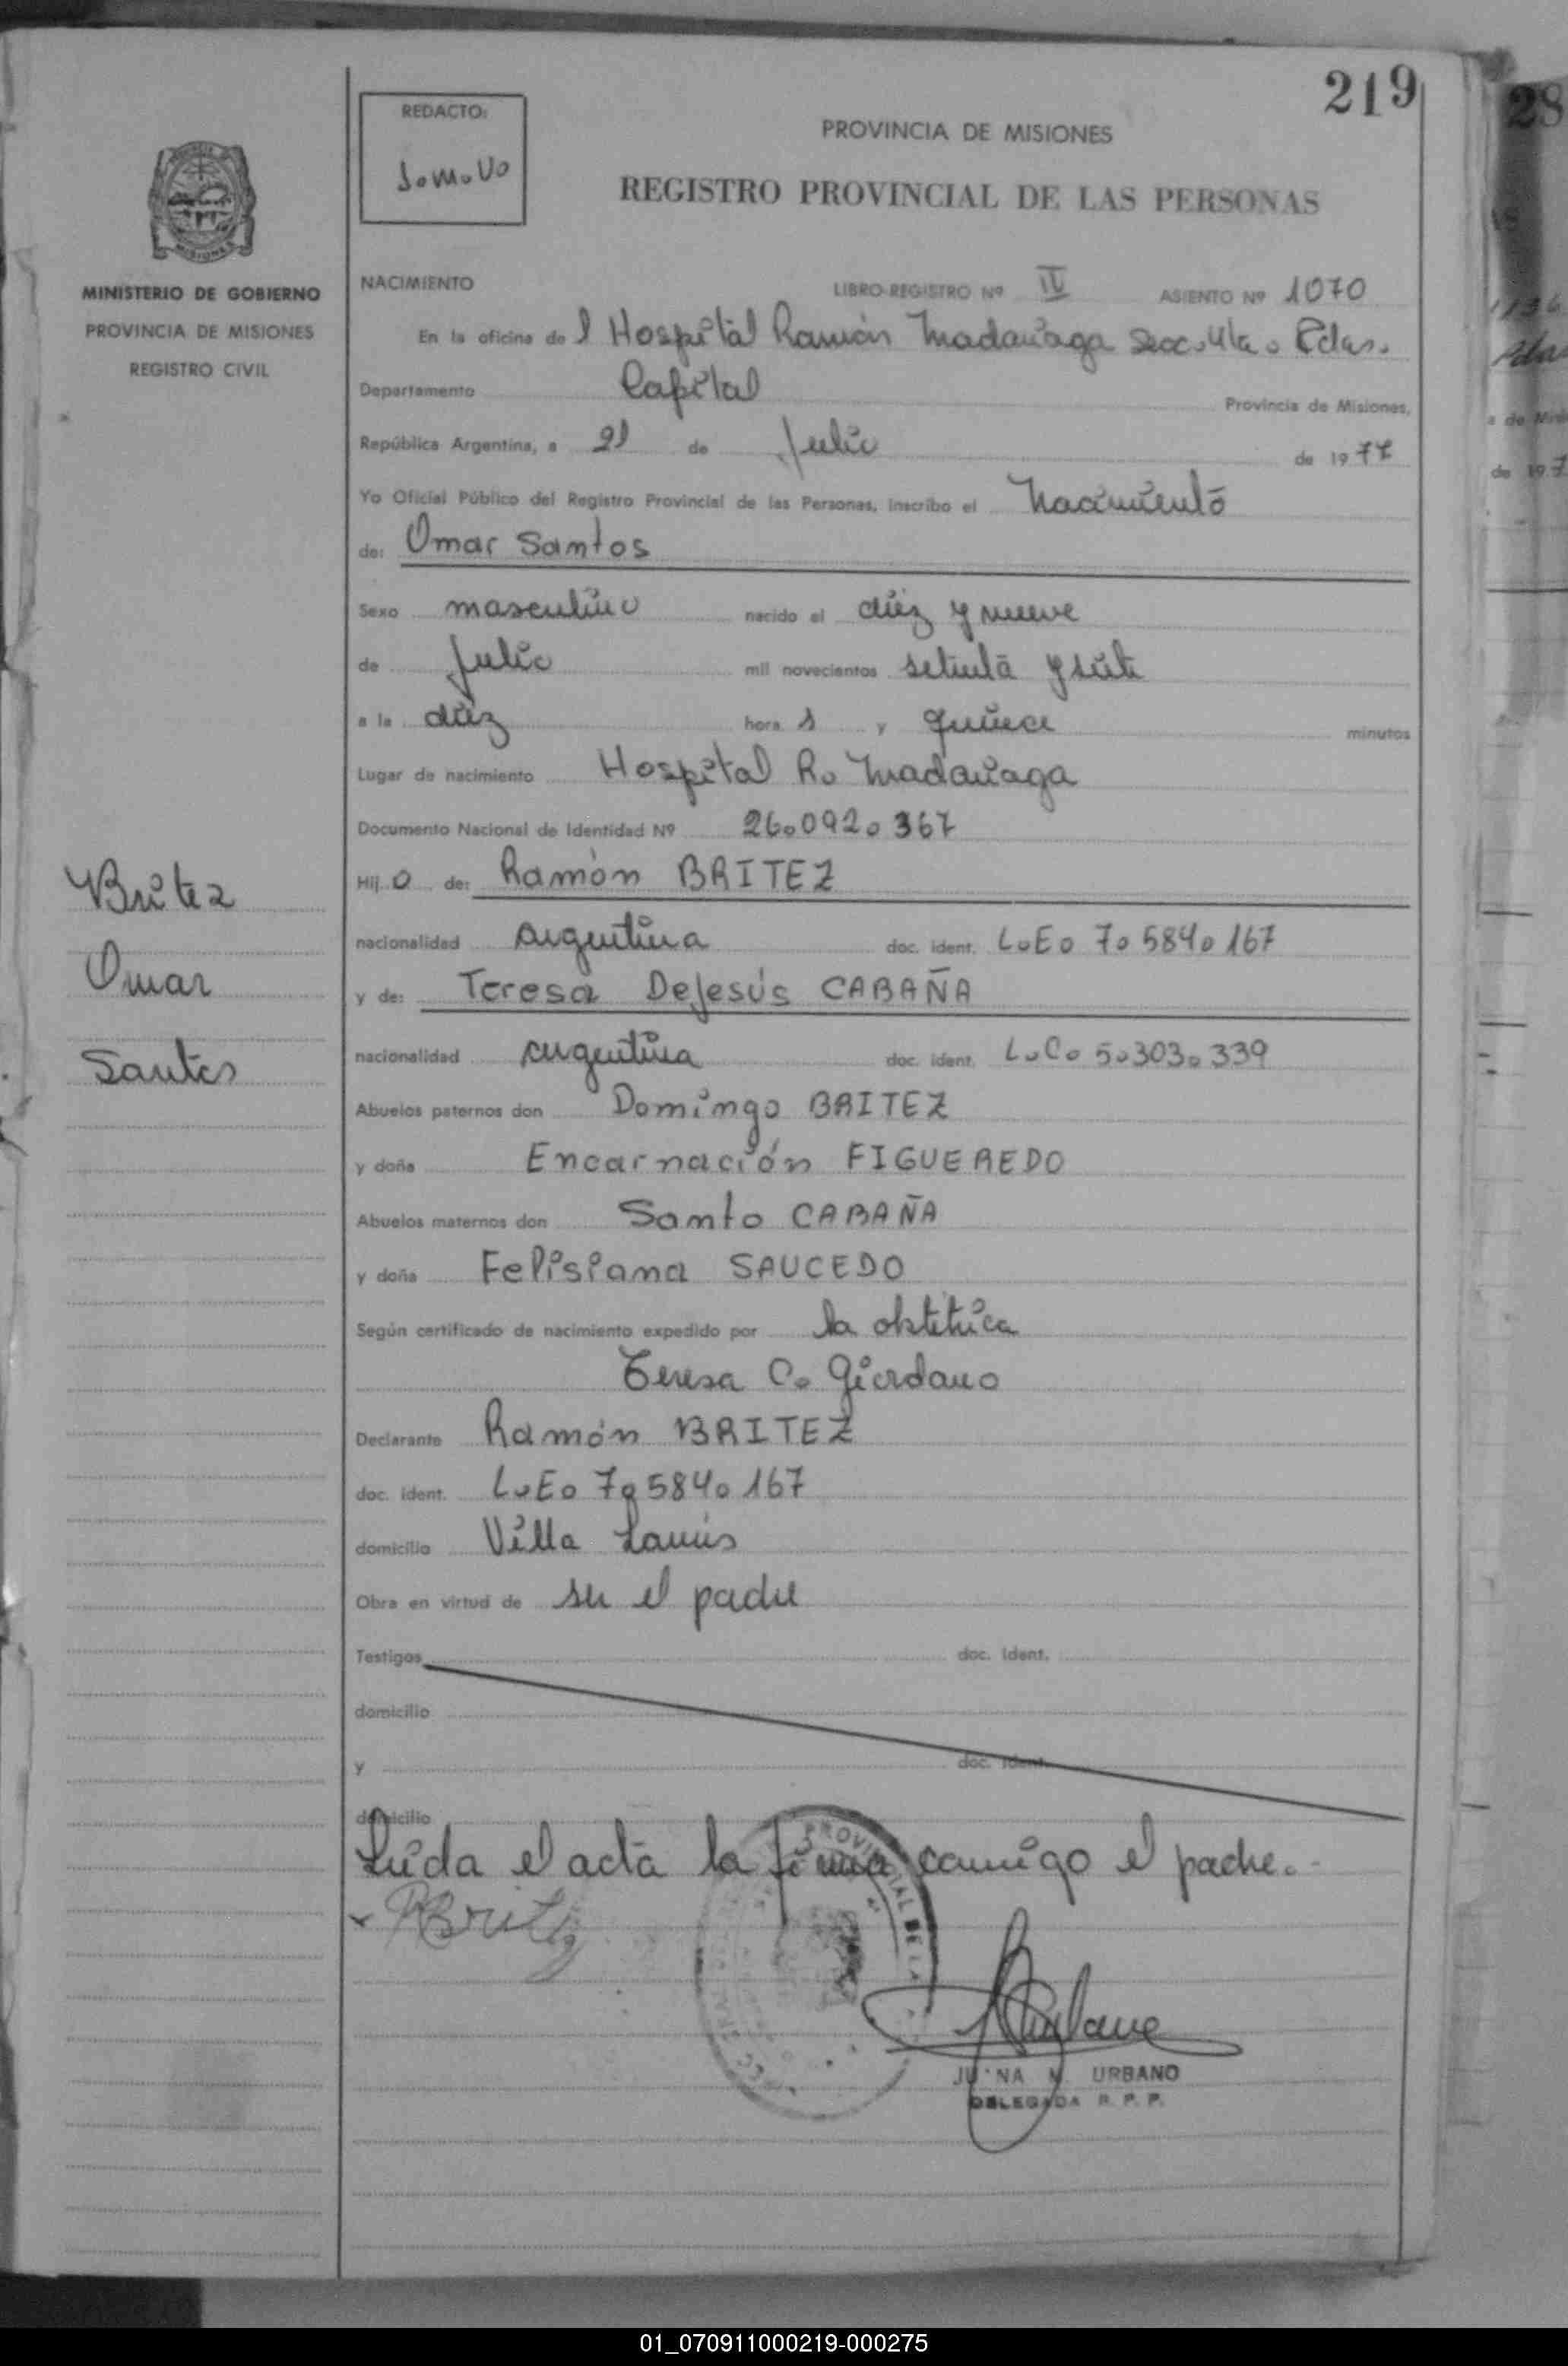 219
REDACTO:
J.M.U.
PROVINCIA DE MISIONES
REGISTRO PROVINCIAL DE LAS PERSONAS
MISIONES
MINISTERIO DE GOBIERNO
PROVINCIA DE MISIONES
REGISTRO CIVIL
NACIMIENTO LIBRO-REGISTRO Nº IV ASIENTO Nº 1070
En la oficina de l Hospital Ramón Madariaga Secc. 4ta. Pdas.
Departamento Capital Provincia de Misiones,
República Argentina, a 21 de Julio de 1977
Yo Oficial Público del Registro Provincial de las Personas, inscribo el Nacimiento
de: Omar Santos
Sexo masculino nacido el diez y nueve
de Julio mil novecientos setenta y siete
a la diez hora s y quince minutos
Lugar de nacimiento Hospital R. Madariaga
Documento Nacional de Identidad Nº 26.092.367
Hij o de: Ramón BRITEZ
nacionalidad argentina doc. ident. L.E. 7.584.167
y de: Teresa DeJesús CABAÑA
nacionalidad argentina doc. ident. L.C. 5.303.339
Abuelos paternos don Domingo BRITEZ
y doña Encarnación FIGUEREDO
Abuelos maternos don Santo CABAÑA
y doña Felisiana SAUCEDO
Según certificado de nacimiento expedido por la obstétrica
Teresa C. Giordano
Declarante Ramón BRITEZ
doc. ident. L.E. 7.584.167
domicilio Villa Lanús
Obra en virtud de ser el padre
Testigos doc. ident.
domicilio
y doc. ident.
domicilio
Leída el acta la firma conmigo el padre.-
RBritez
JUANA M. URBANO
DELEGADA R. P. P.
Britez
Omar
Santos
01_070911000219-000275